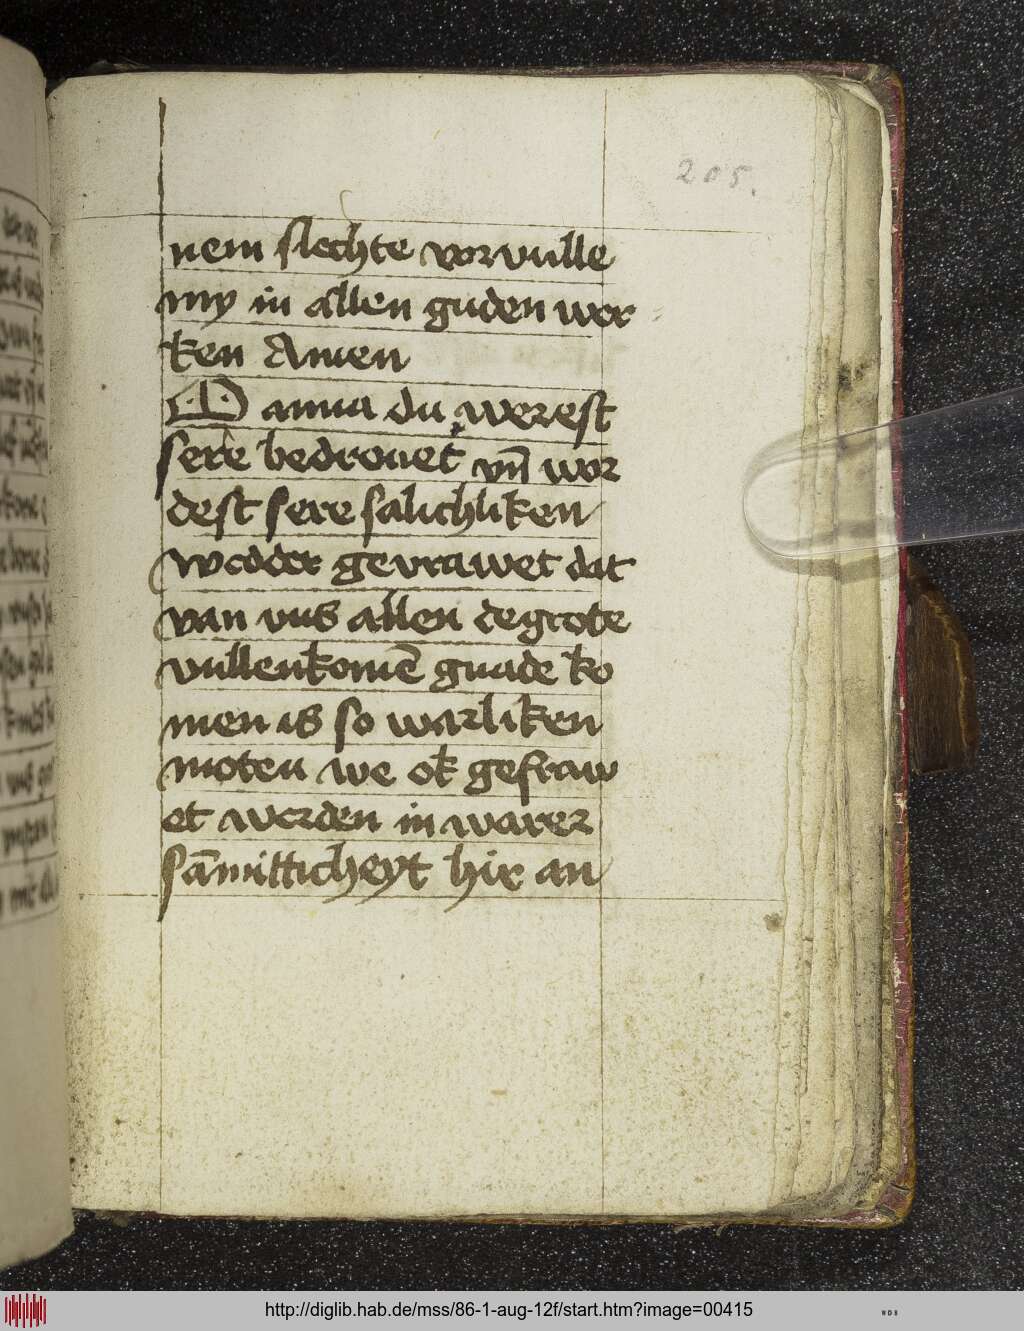 205.
nem slechte vorvulle
my in allen guden wer
ken Amen
O anna du werest
sere bedrouet vn̄ wor
dest sere salichliken
wedder gevrawet dat
van vns allen de grote
vullenkomē gnade ko
men is so warliken
moten we ok gefraw
et werden in warer
sāmitticheyt hir an
http://diglib.hab.de/mss/86-1-aug-12f/start.htm?image=00415